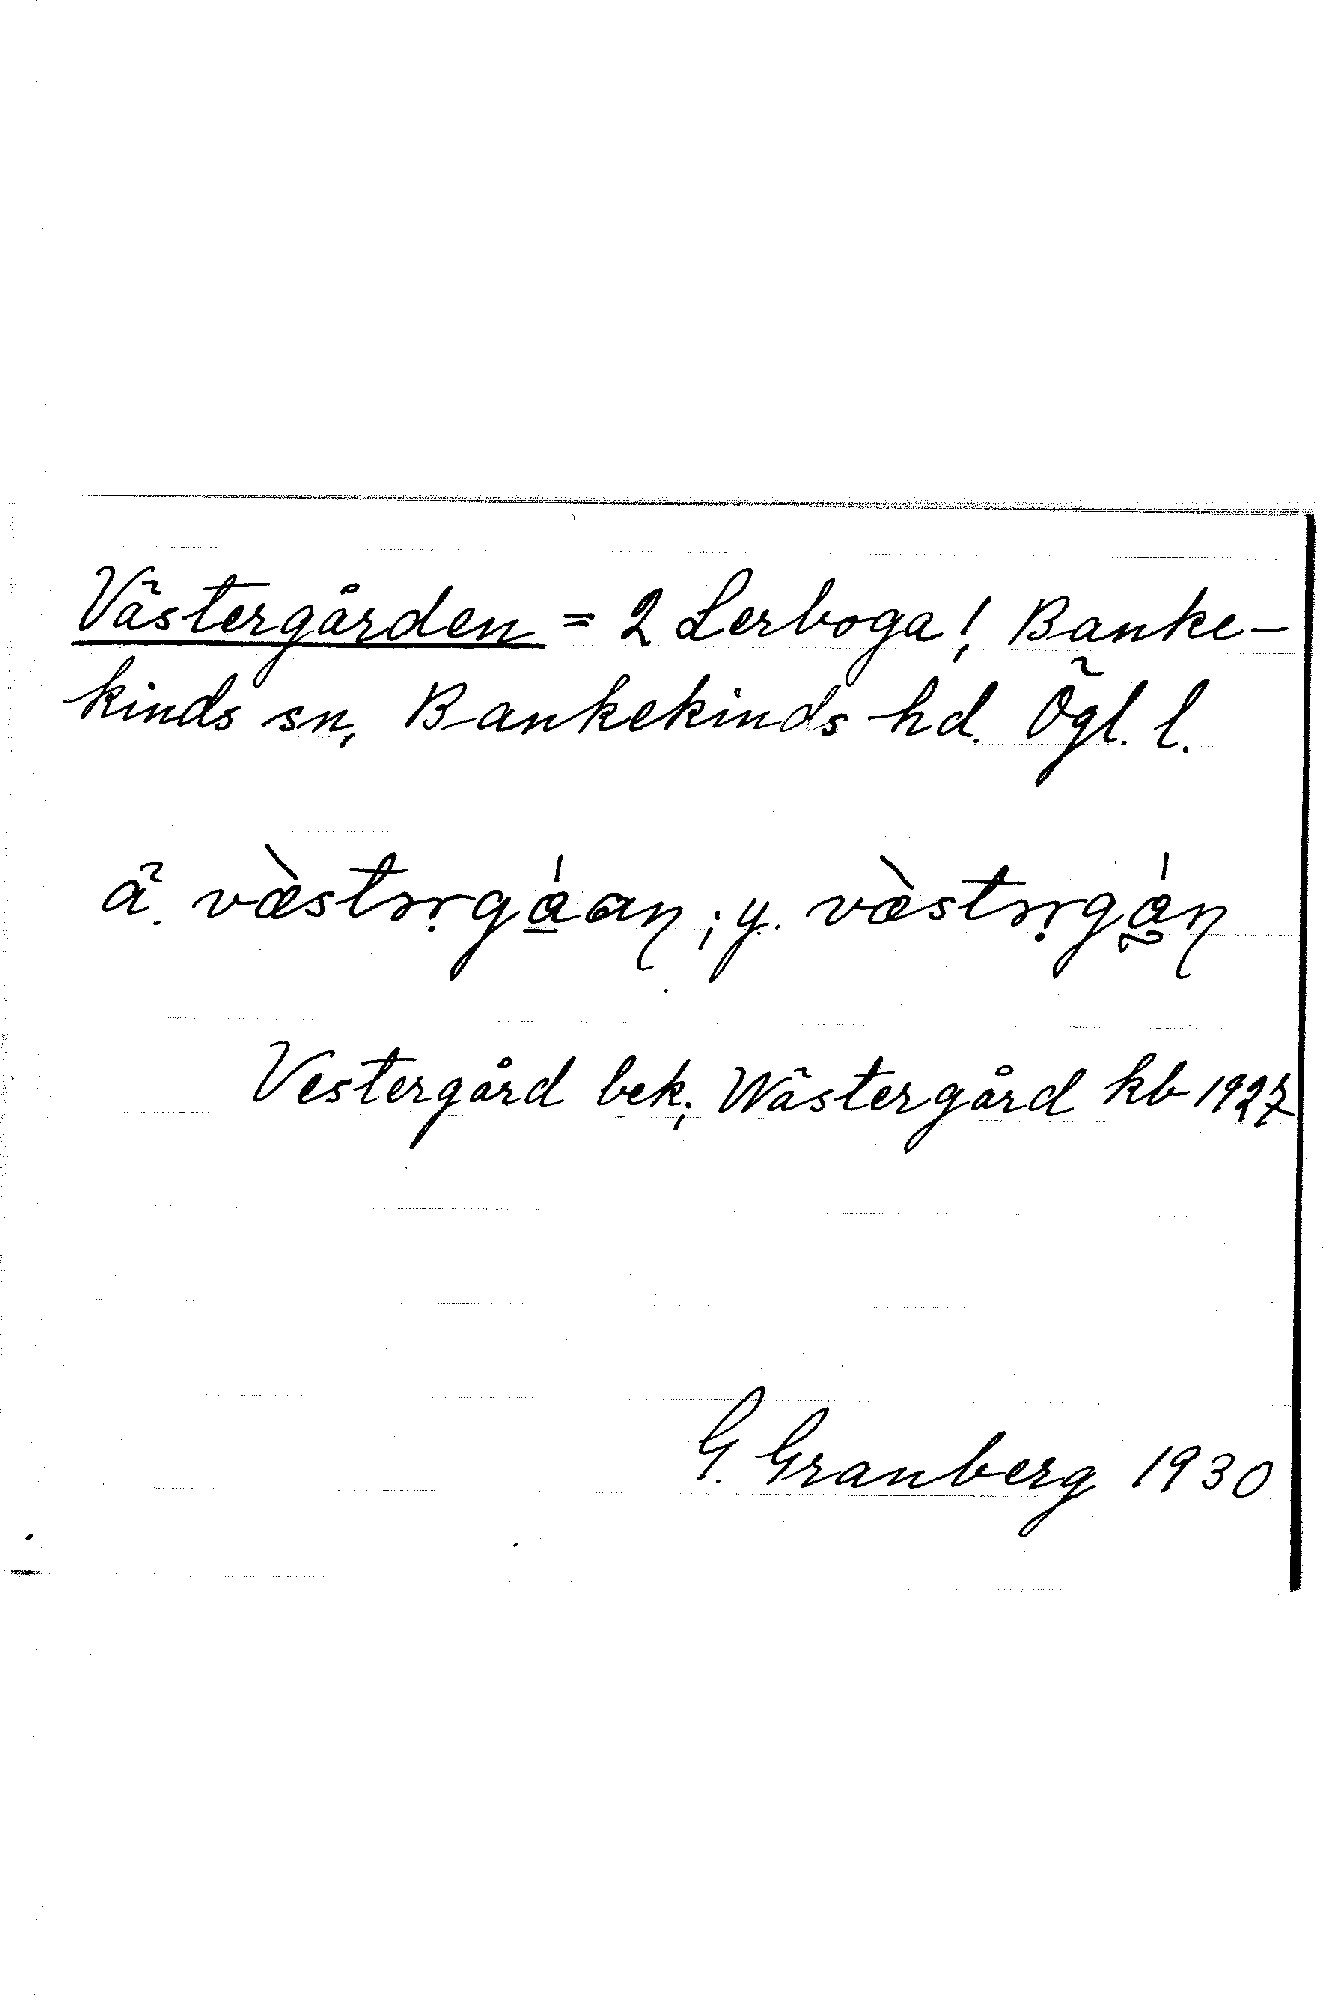 Västergården = 2 Lerboga! Banke-
kinds sn, Bankekinds hd. Ögl. l.
ä. væ̀stərgáan; y. væ̀stərgán
Vestergård bek; Wästergård kb 1927
G. Granberg 1930